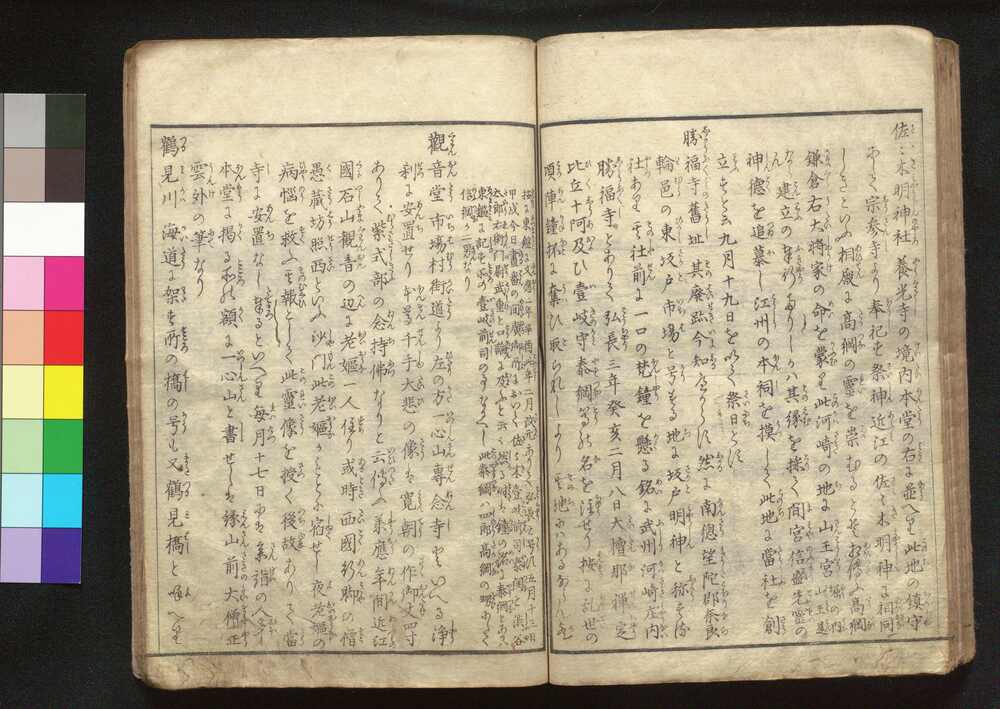 佐々木明神社 養光寺の境内本堂の右に並へり此地の鎮守
にして宗泰寺より奉祀す祭神近江の佐々木明神に祠同
しきといふ相殿に高綱の霊を崇むるとそ相傳ふ高綱
鎌倉右大将家の命を蒙り此河崎の地に山王宮
建立の 其縁を採て間宮信盛先霊の
神徳を追慕し江州の本祠を摸して此地に當社を創
立すと云九月十九日を以て祭日とす
勝福寺舊址 其廃跡今知へからす然に南総望陀郡奈良
輪邑の東坂戸市場と号する地に坂戸明神と称する
社あり其社前に一口の梵鐘を懸る銘に武州河崎庄内
勝福寺とありて弘長三年癸亥二月八日大檀那禅定
比丘十阿及ひ壹岐守泰綱等の名を注せり按に乱世の
頃陣鐘抔に奪ひ取られしより其地にあるならんか
按に東鑑に文應二年辛酉 二月改元ありて弘長と号す五月十三日
甲戌今日畫番の間 に於て佐々木壹岐前司泰綱 渋谷
太郎左衛門尉武重と口論に及ふと云々然る時は鐘の銘に泰綱とあるは
東鑑に記す所の壹岐前司の事なるへし此泰綱は四郎高綱の
信綱の 男なり
觀音堂 市場村街道より左の方一心山専念寺といへる浄
刹に安置せり本尊千手大悲の像は寛朝の作御丈四寸
ありて紫式部の念持佛なりと云傳ふ承應年間近江
國石山観音の辺に老嫗一人住り或時西國行脚の僧
愚蔵坊照西といふ沙門此老嫗か に宿せし夜老嫗の
病悩を救ふ其報として此靈像を授く後故ありて當
寺に安置なし奉るといへり毎月十七日には参詣の人多し
本堂に掲る所の額に一心山と書せしは縁山前大僧正
雲外の筆なり
鶴見川 海道に架す所の橋の号も又鶴見橋と唱へり